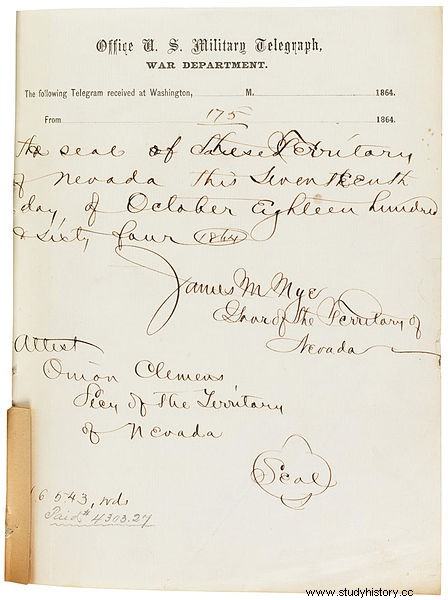 Office U. S. Military Telegraph,
WAR DEPARTMENT.
The following Telegram received at Washington, M. 1864.
From 175 1864.
the seal of the Territory
of Nevada this Seventeenth
day, of October Eighteen hundred
& sixty four 1864
James M Nye
Gvor of the Territory of
Nevada
Attest
Orion Clemens
Secy of the Territory
of Nevada
Seal
16 543, wds
Paid $4303.27
www.studyhistory.cc